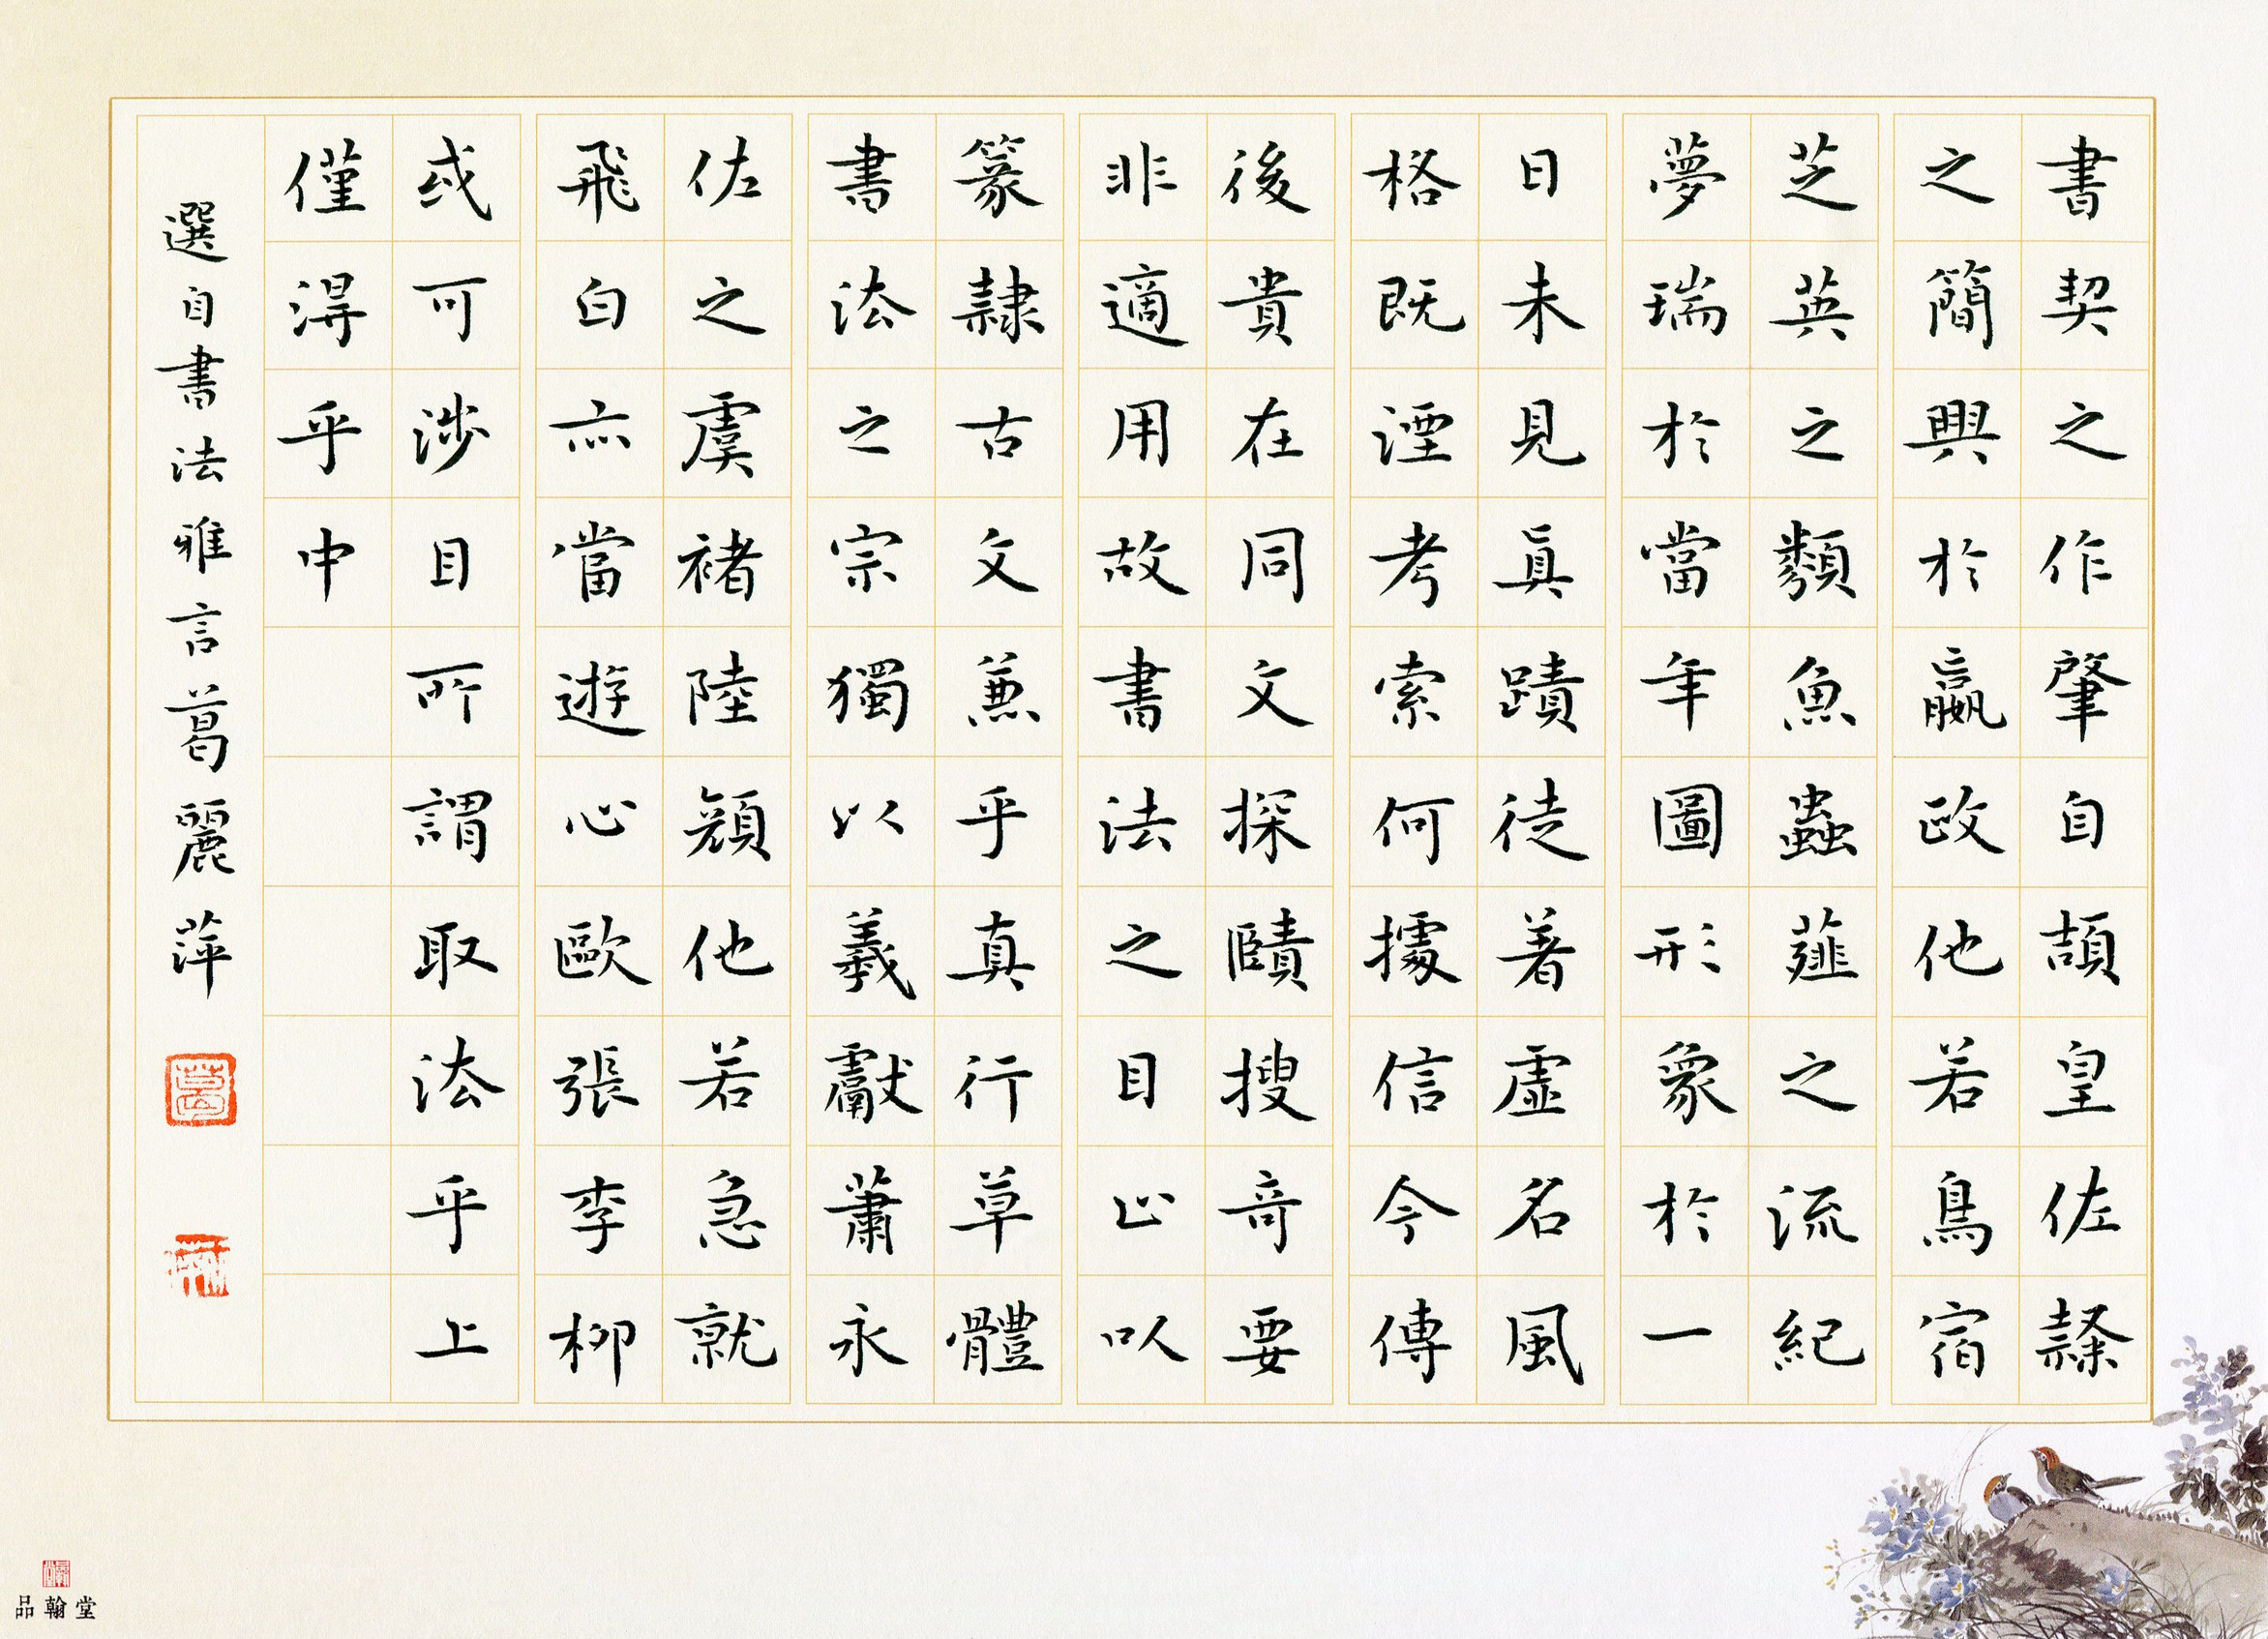 書契之作肇自頡皇佐隸
之簡興於嬴政他若鳥宿
芝英之類魚蟲薤之流紀
夢瑞於當年圖形象於一
日未見真蹟徒著虛名風
格既湮考索何據信今傳
後貴在同文探賾搜奇要
非適用故書法之目止以
篆隸古文兼乎真行草體
書法之宗獨以羲獻蕭永
佐之虞褚陸顏他若急就
飛白亦當遊心歐張李柳
或可涉目所謂取法乎上
僅得乎中
選自書法雅言葛麗萍
品翰堂